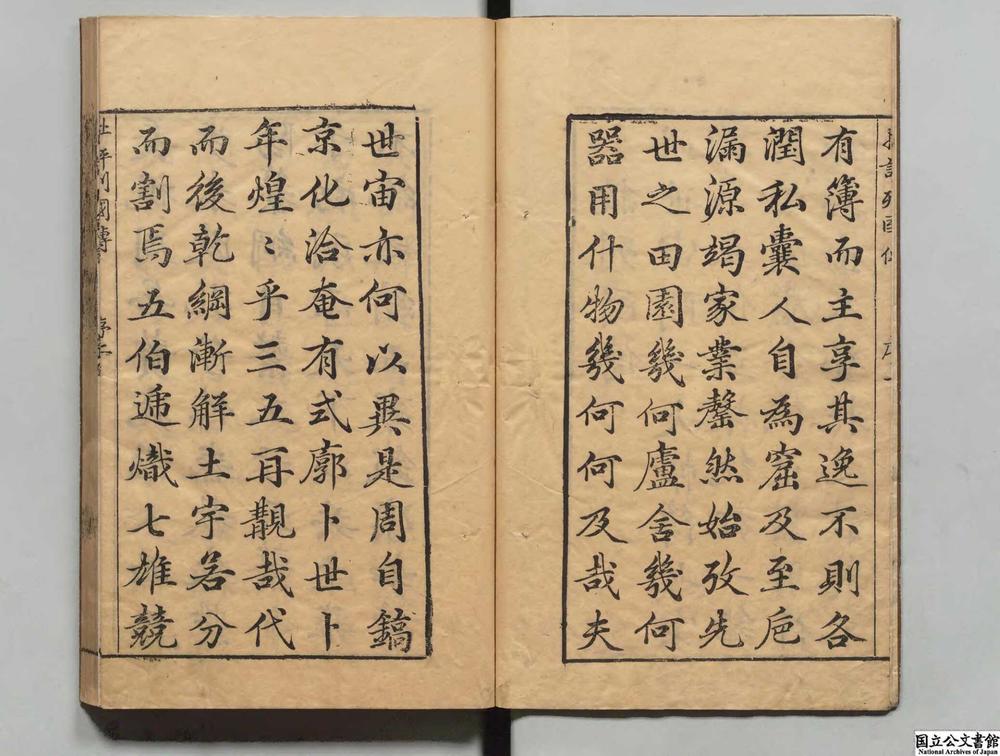 有簿而主享其逸不則各
潤私囊人自為窟及至巵
漏源竭家業罄然始攷先
世之田園幾何廬舍幾何
器用什物幾何何及哉夫
世宙亦何以異是周自鎬
京化洽奄有式廓卜世卜
年煌〻乎三五再觀哉代
而後乾綱漸解土宇畧分
而割焉五伯遞熾七雄競
列國傳
序
国立公文書館
National Archives of Japan